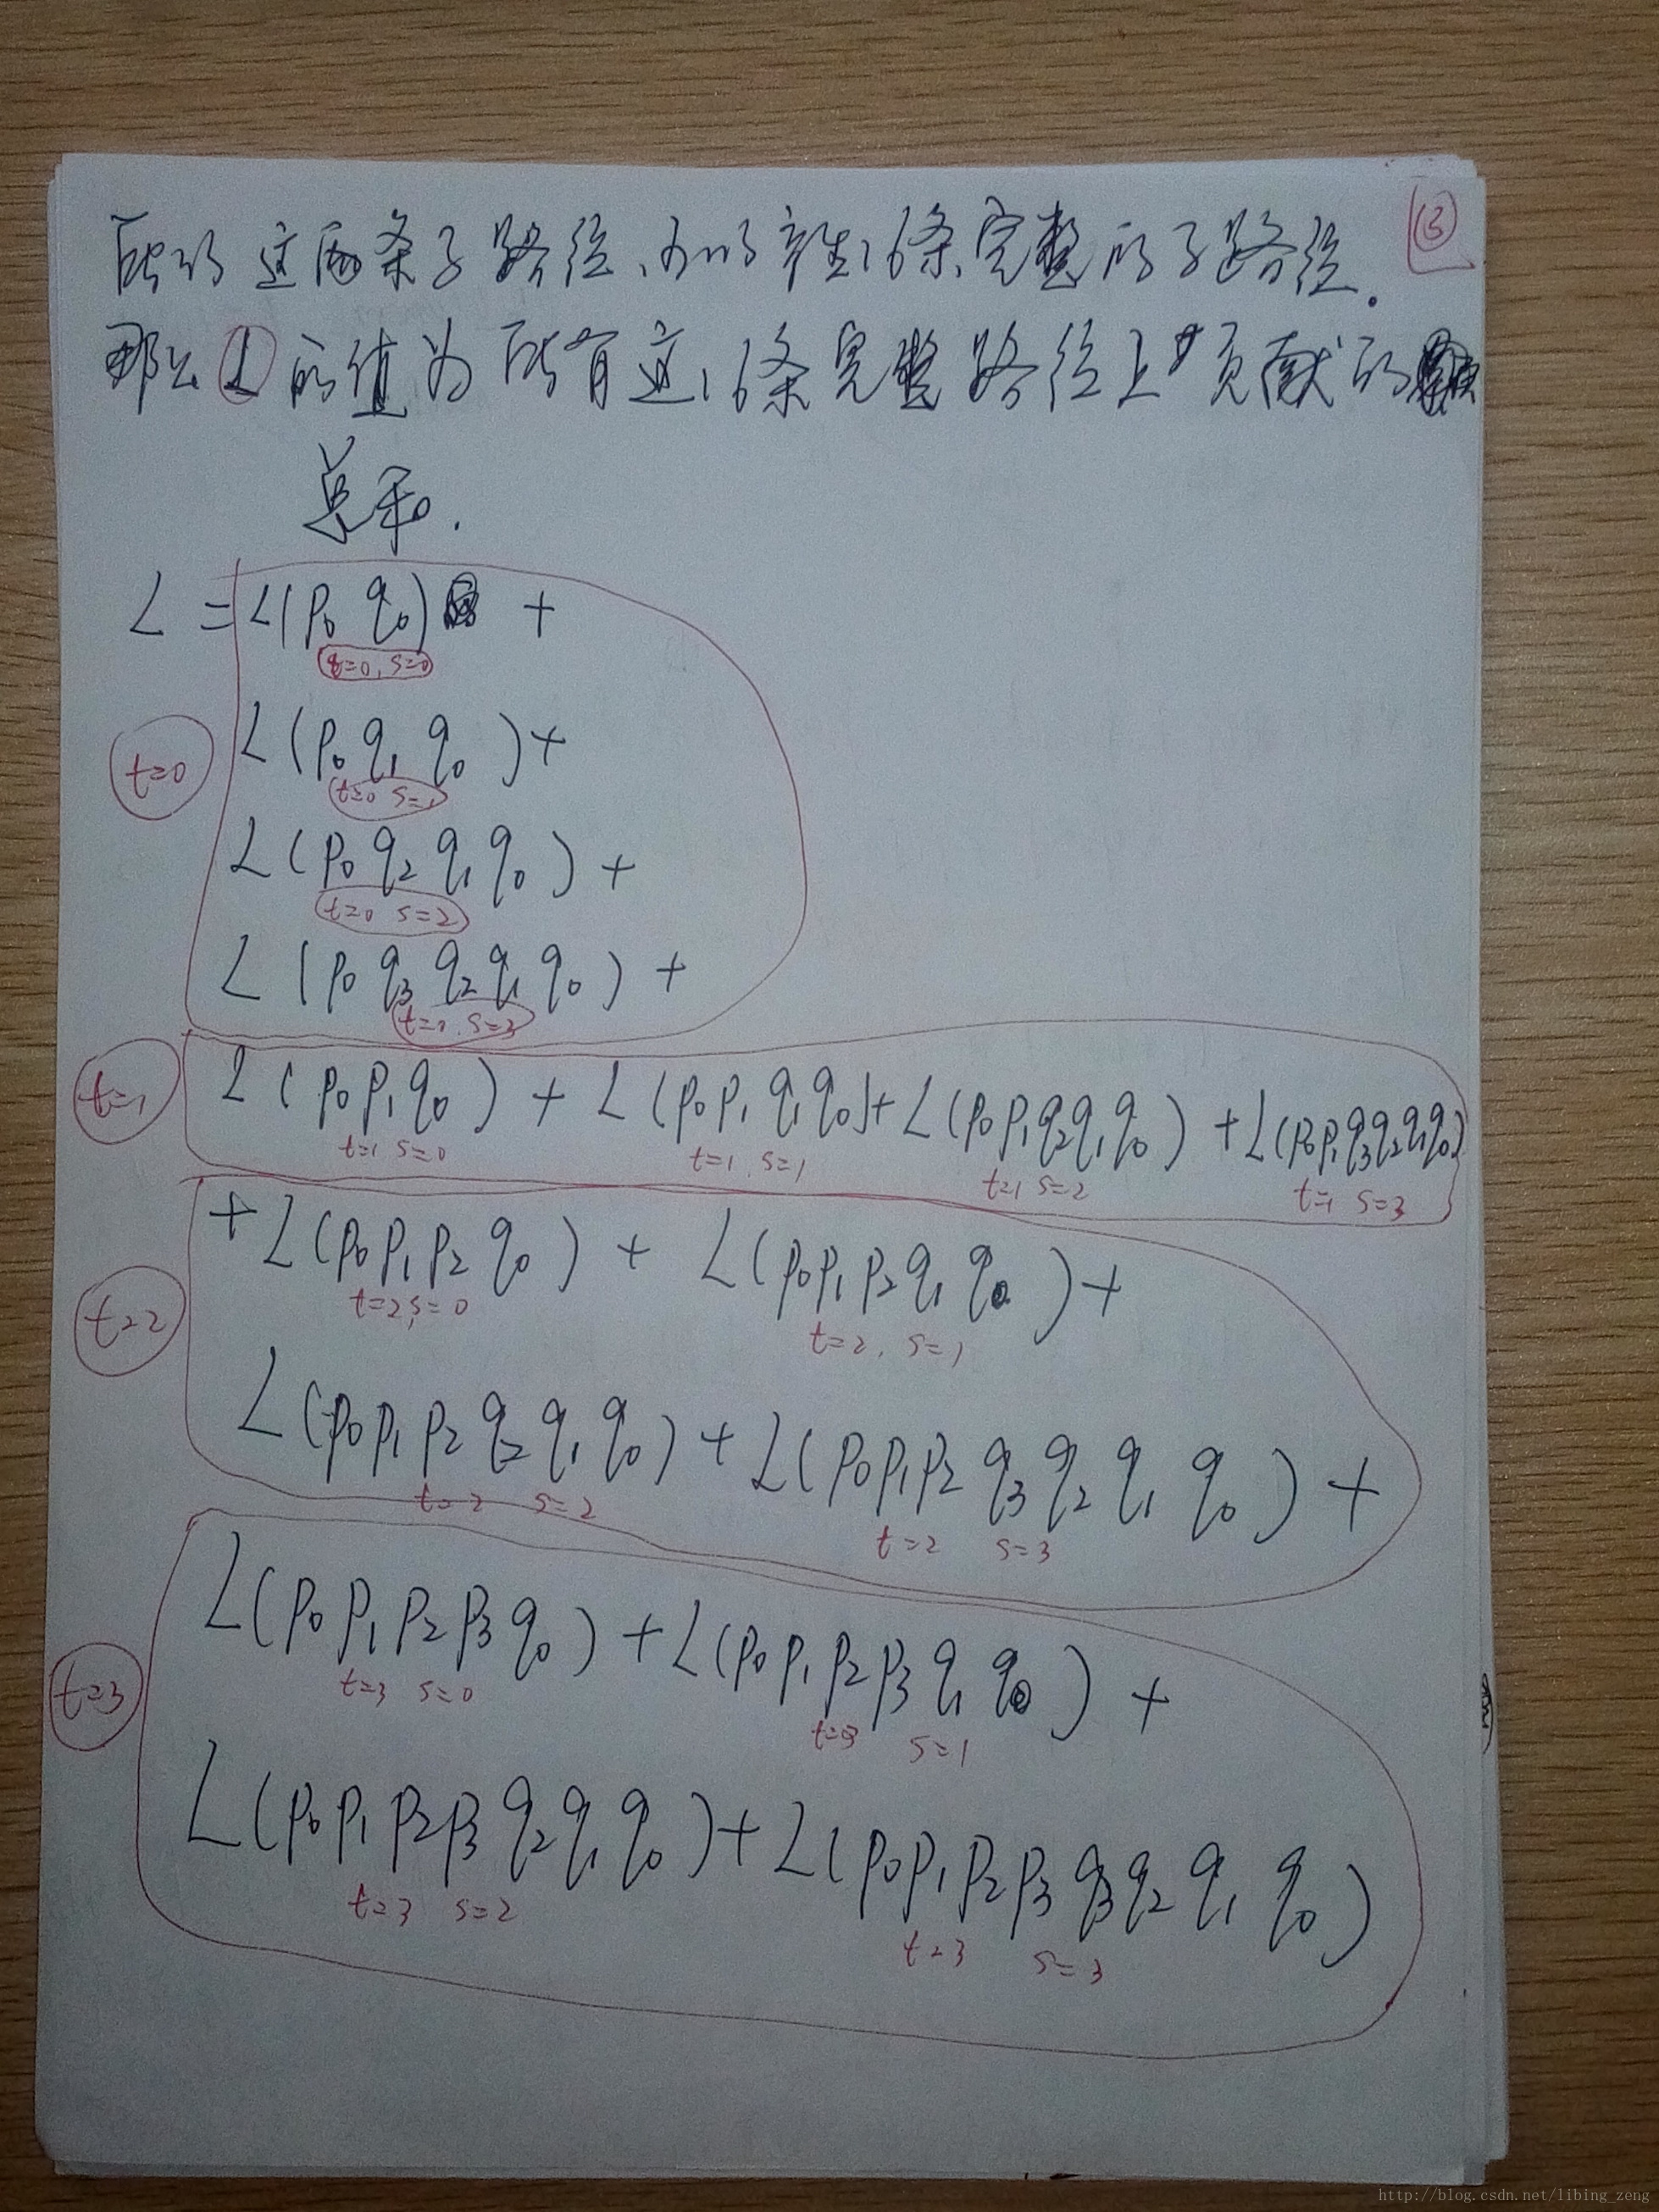 ③
所以这两条子路径,可以产生16条完整的子路径.
那么L的值为所有这16条完整路径上贡献的
总和.
L = L(p0 q0) +
t=0, s=0
L(p0 q1 q0) +
t=0 s=1
t=0
L(p0 q2 q1 q0) +
t=0 s=2
L(p0 q3 q2 q1 q0) +
t=0, s=3
t=1
L(p0 p1 q0) + L(p0 p1 q1 q0) + L(p0 p1 q2 q1 q0) + L(p0 p1 q3 q2 q1 q0)
t=1 s=0 t=1, s=1 t=1 s=2 t=1 s=3
+ L(p0 p1 p2 q0) + L(p0 p1 p2 q1 q0) +
t=2, s=0 t=2, s=1
t=2
L(p0 p1 p2 q2 q1 q0) + L(p0 p1 p2 q3 q2 q1 q0) +
t=2 s=2 t=2 s=3
L(p0 p1 p2 p3 q0) + L(p0 p1 p2 p3 q1 q0) +
t=3 s=0 t=3 s=1
t=3
L(p0 p1 p2 p3 q2 q1 q0) + L(p0 p1 p2 p3 q3 q2 q1 q0)
t=3 s=2 t=3 s=3
http://blog.csdn.net/libing_zeng